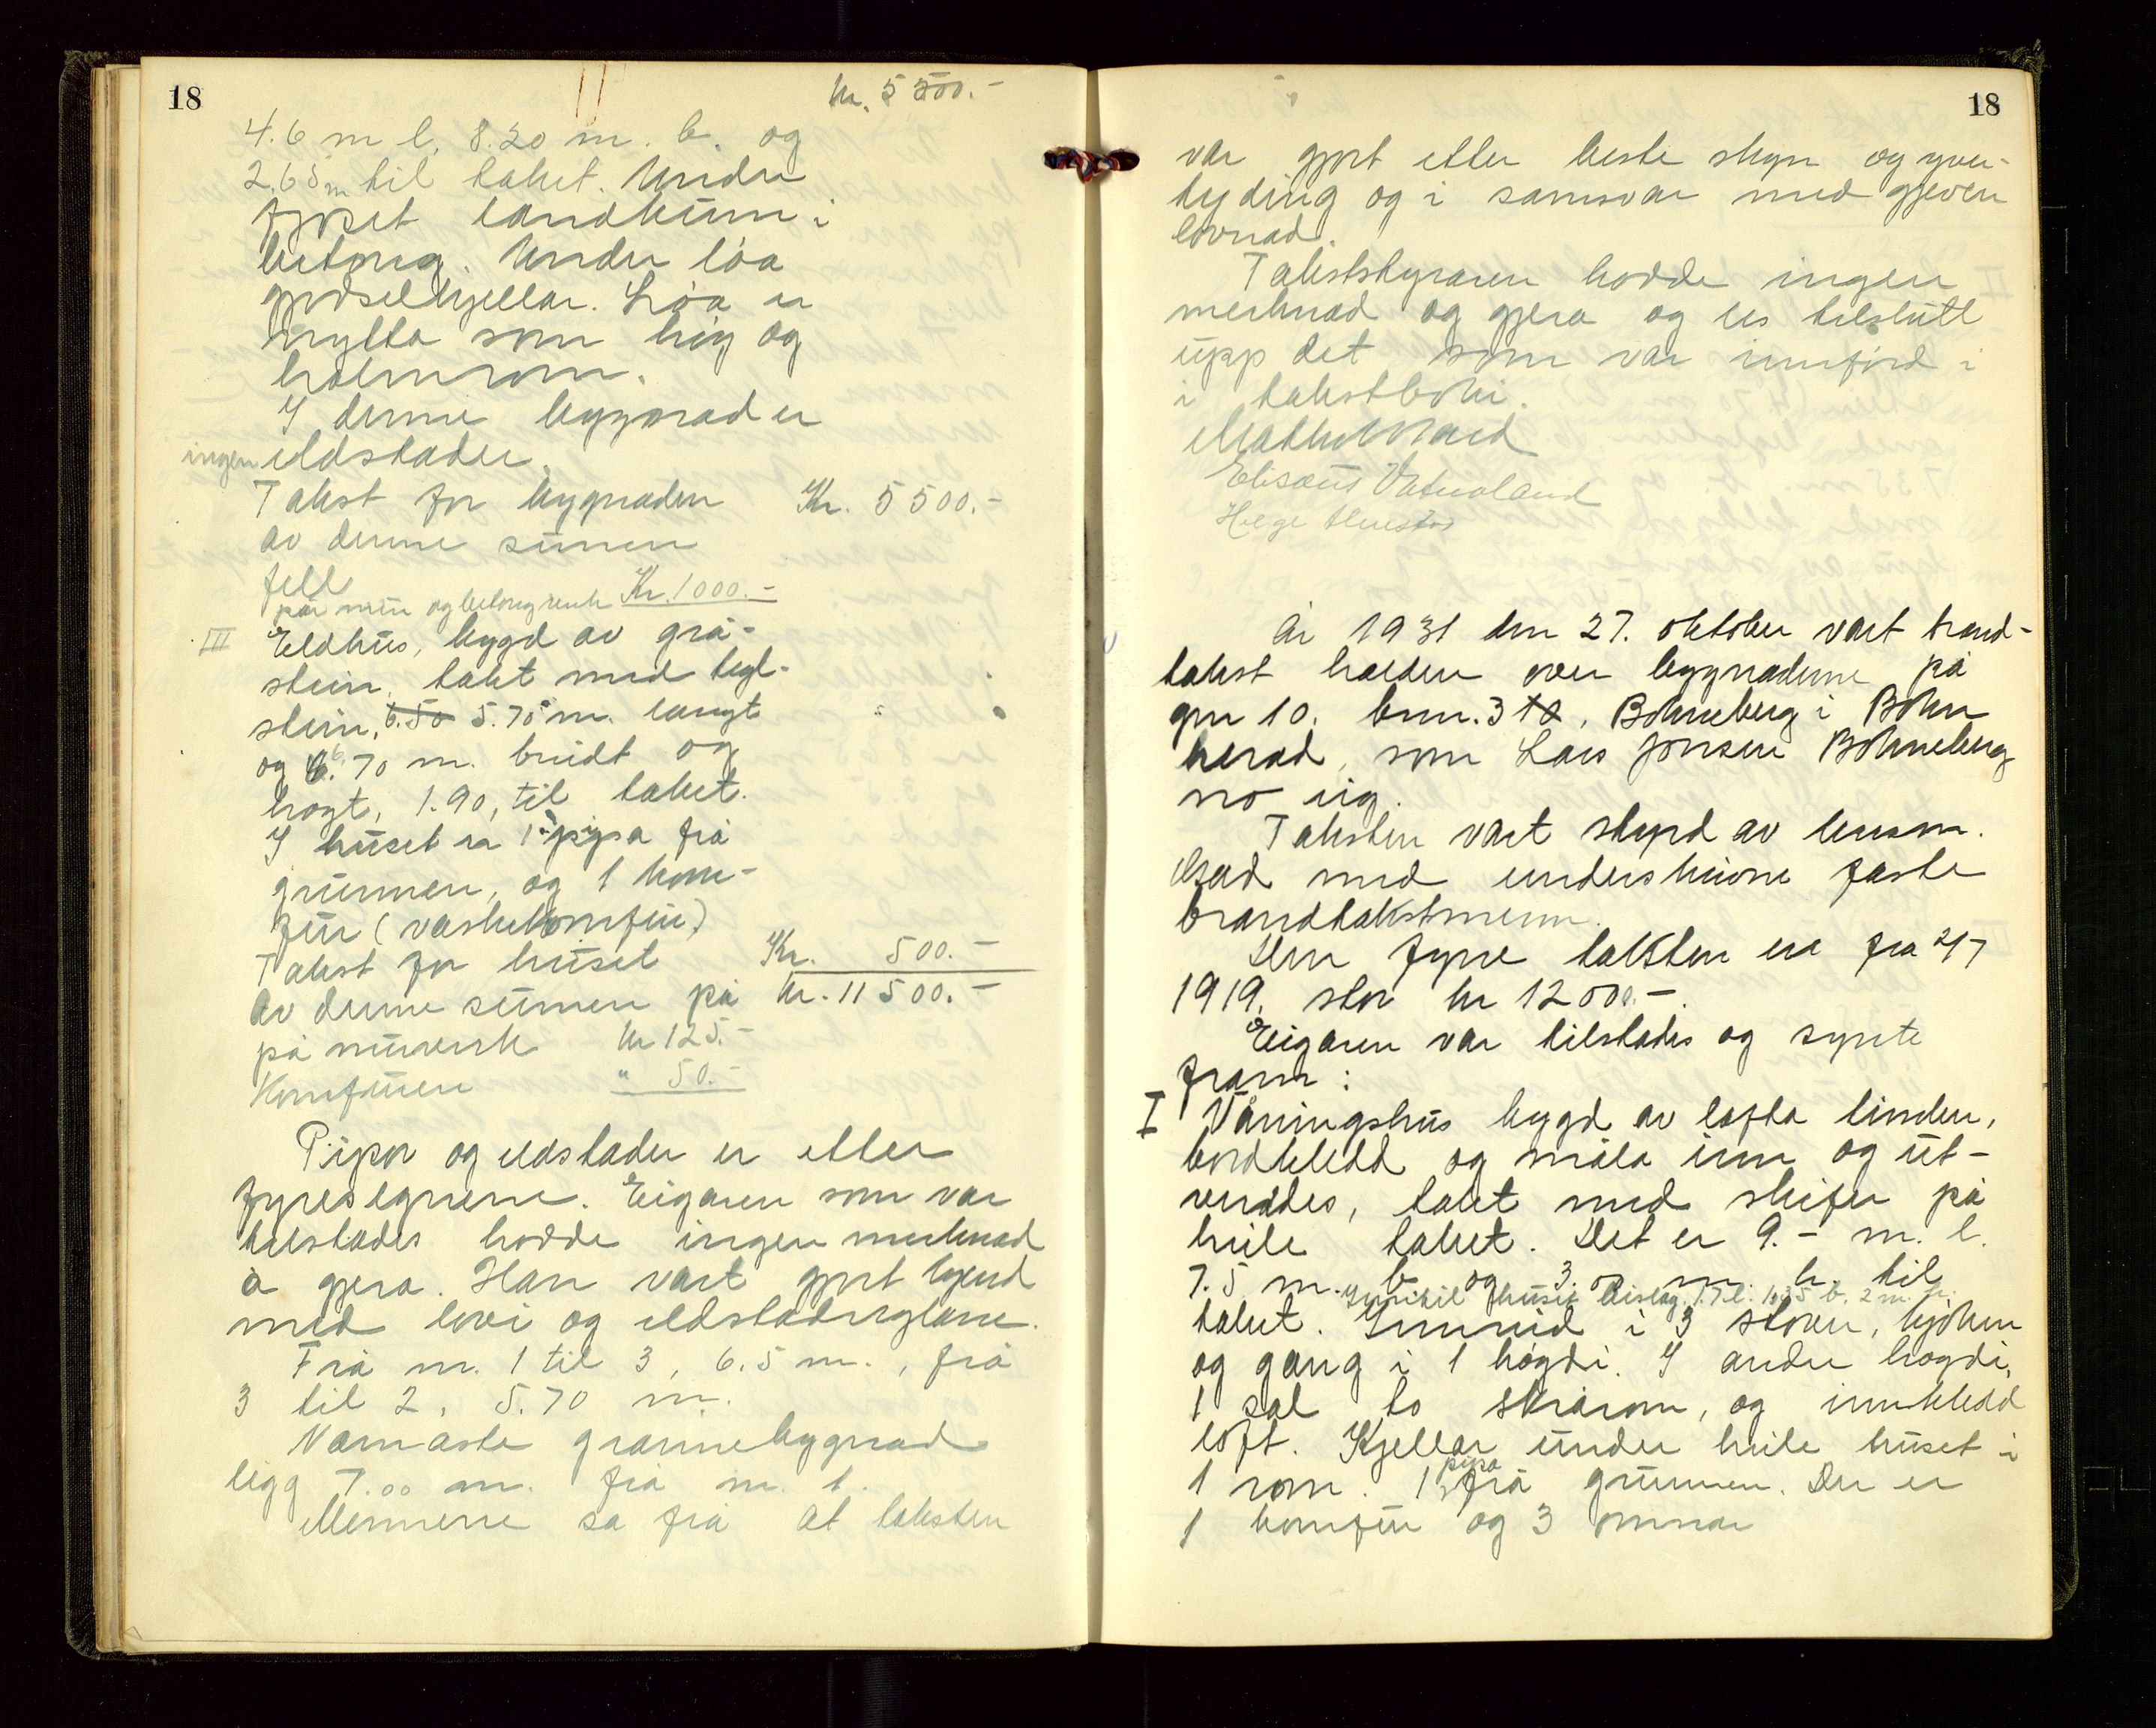 18
kr. 5 500.-
4.6 m l, 8.20 m. b. og
2.65 m til taket. Under
fjøset landkum i
betong. Under løa
gjødselkjellar. Løa er
nytta som høy og
halmrom.
I denne bygnad er
ingen eldstader.
Takst for bygnaden Kr. 5 500.-
av denne sumen
fell
på mur og betongverk Kr. 1000.-
III Eldhus, bygd av grå-
stein, takt med tegl-
stein, 6.50 5.70 m. langt
og 6.70 m. breidt og
høgt, 1.90, til taket.
I huset er 1 pipa frå
grunnen, og 1 kom-
fur (vaskekomfur)
Takst for huset Kr. 500.-
Av denne sumen på kr. 11 500.-
på murverk kr 125.-
Komfuren " 50.-
Pipor og eldstader er etter
fyresegnene. Eigaren som var
tilstades hadde ingen merknad
å gjera. Han vart gjort kjend
med lovi og eldstadreglane.
Frå nr. 1 til 3, 6.5 m., frå
3 til 2, 5.70 m.
Næmaste grannebygnad
ligg 7.00 m. frå nr. 1.
Mennene sa frå at taksten
18
var gjort etter beste skyn og yver-
tyding og i samsvar med gjeven
lovnad.
Takststyraren hadde ingen
merknad og gjera og les tilslutt
upp det som var innførd i
i takstboki.
Elisæus Vatnaland
Helge
År 1931 den 27. oktober vart brand-
takst halden over bygnadene på
gnr 10. bnr. 3 10, Bøkneberg i Bokn
herad, som Lars Jonsen Bøkneberg
no eig.
Taksten vart styrd av lensm.
med underskrivne faste
brandtakstmenn.
Den fyrre taksten er fra 4/7
1919. stor kr 12000.-.
Eigaren var tilstades og synte
fram:
I Våningshus bygd av lafta timber,
bordkledd og måla inn og ut-
vendes, takt med skifer på
heile taket. Det er 9.- m. l.
7.5 m. b og 3.00 m. h. til
Inntil huset bislag 1.7 l. 1.35 b. 2 m. h.
taket. Innreid i 3 stover, kjøken
og gang i 1 høgdi. I andre høgdi,
1 sal to skrårom, og innkledd
loft. Kjellar under heile huset i
1 rom. 1 pipa frå grunnen. Der er
1 komfur og 3 omnar